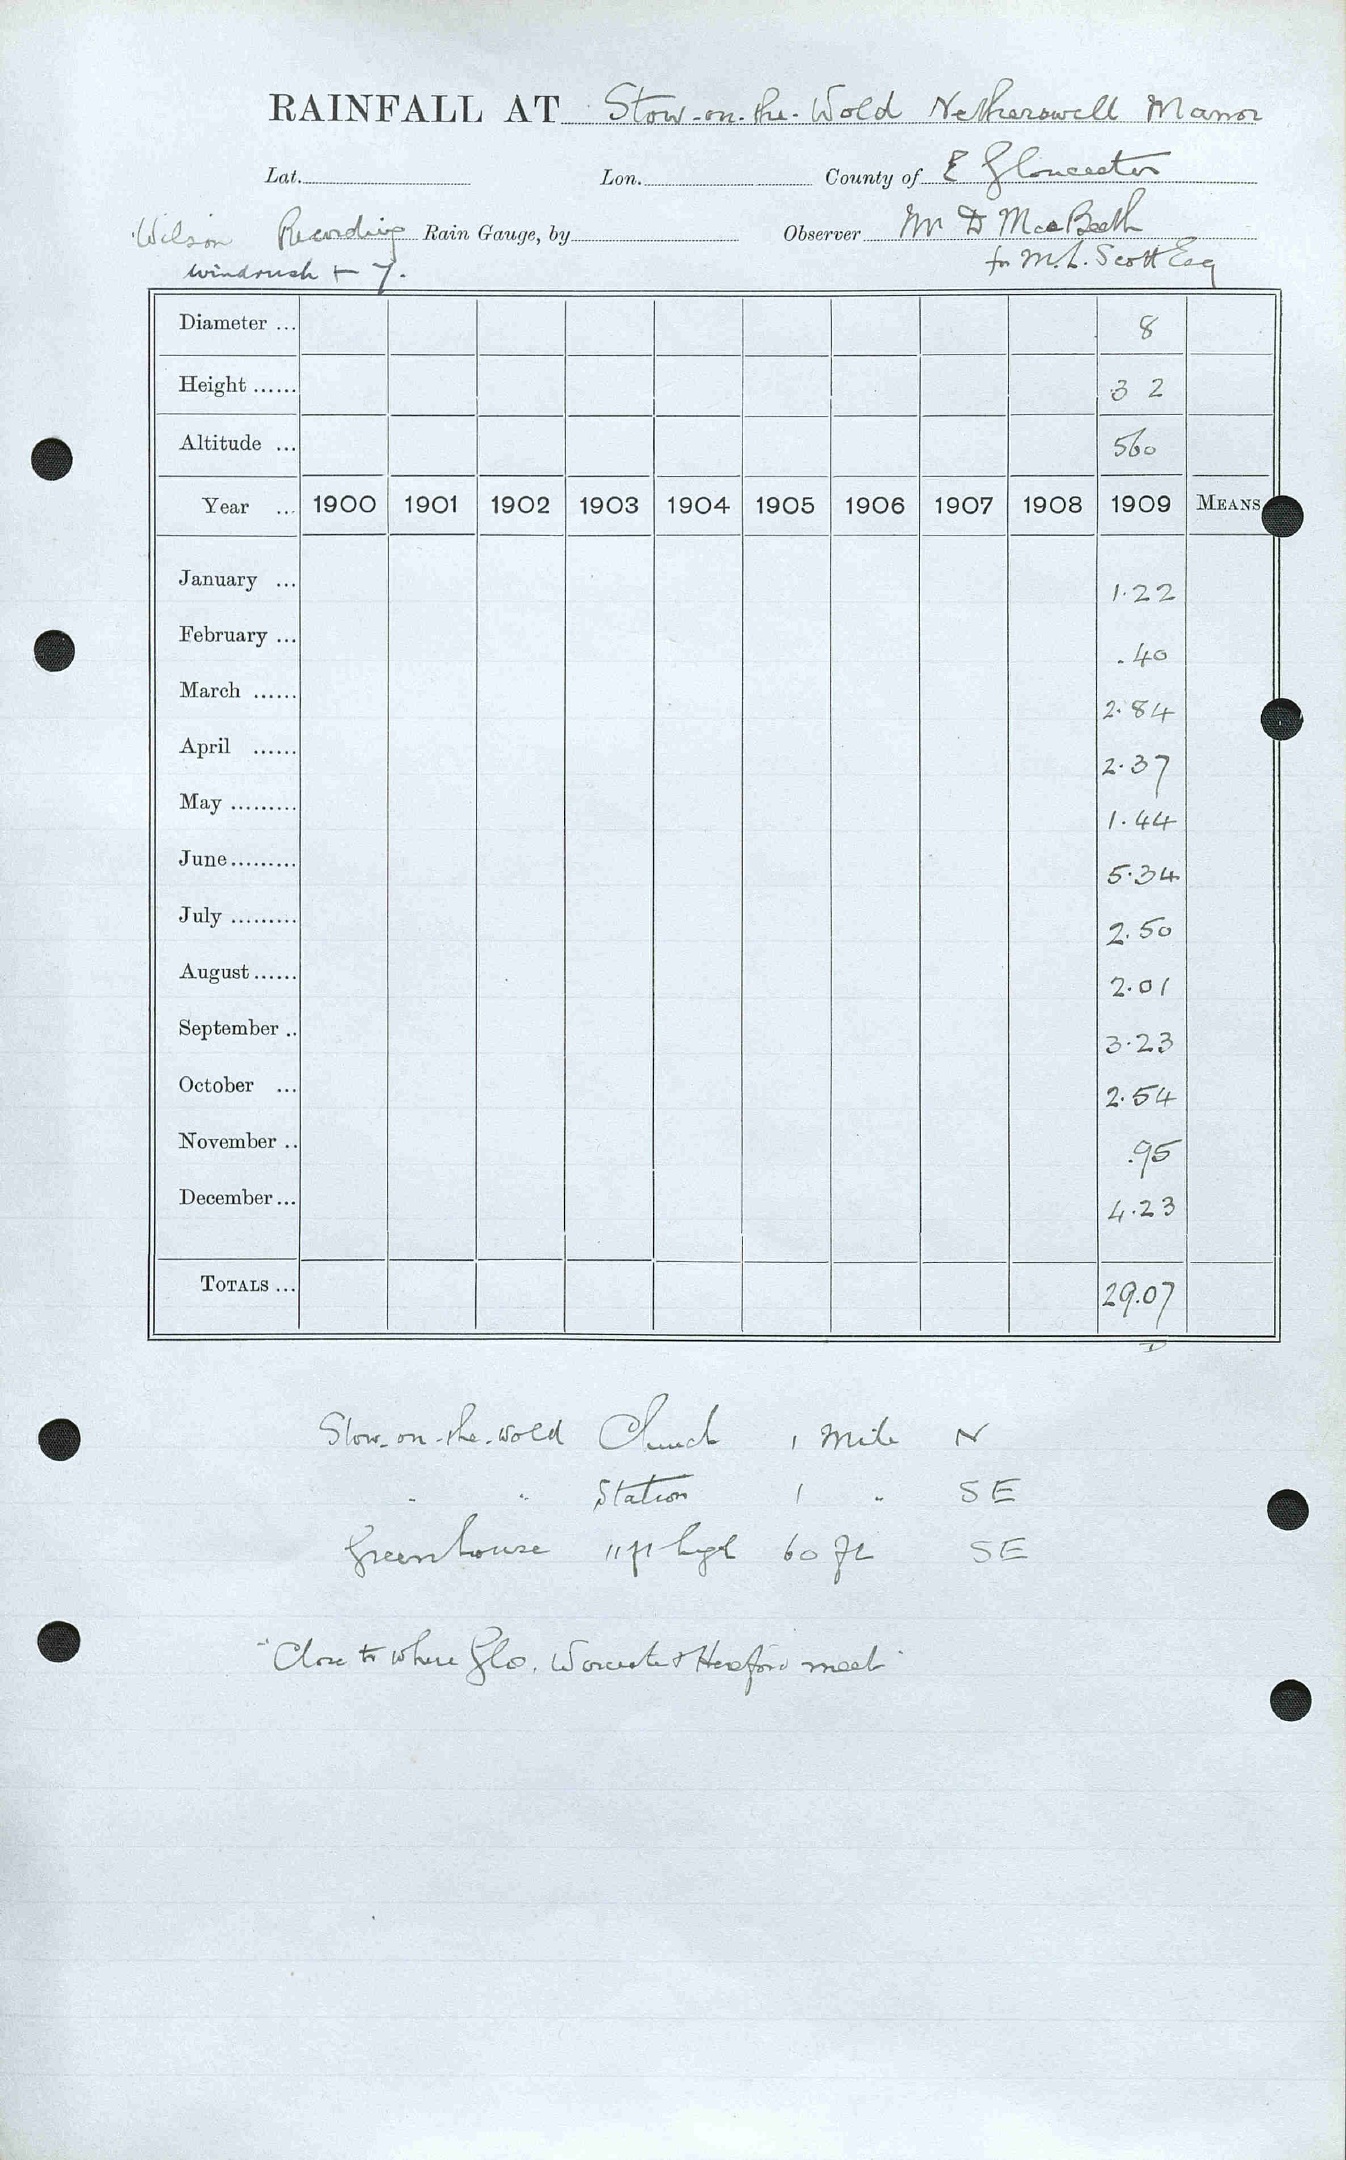 RAINFALL AT Stow-on-the-Wold Netherswell Manor
Lat. Lon. County of E Gloucester
Wilson Recording Rain Gauge, by Observer Mr D MacBeth
Windrush + 7. for M.L. Scott Esq
Diameter ... 8
Height ...... 3 2
Altitude ... 560
Year ... 1900 1901 1902 1903 1904 1905 1906 1907 1908 1909 MEANS
January ... 1.22
February ... .40
March ...... 2.84
April ...... 2.37
May ......... 1.44
June ......... 5.34
July ......... 2.50
August ...... 2.01
September .. 3.23
October ... 2.54
November .. .95
December ... 4.23
TOTALS ... 29.07
D
Stow-on-the-Wold Church 1 Mile N
" " Station 1 " SE
Greenhouse 11 ft high 60 ft SE
"Close to where Glo. Worcester & Hereford meet"